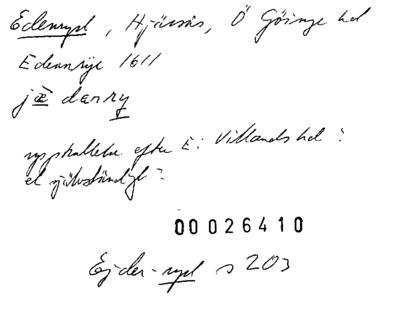 Edenryd, Hjärsås, Ö Göinge hd
Edennrije 1611
jæ̀danry
uppkallelse efter E i Villands hd?
el självständigt?
00026410
Ejder-ryd s 203